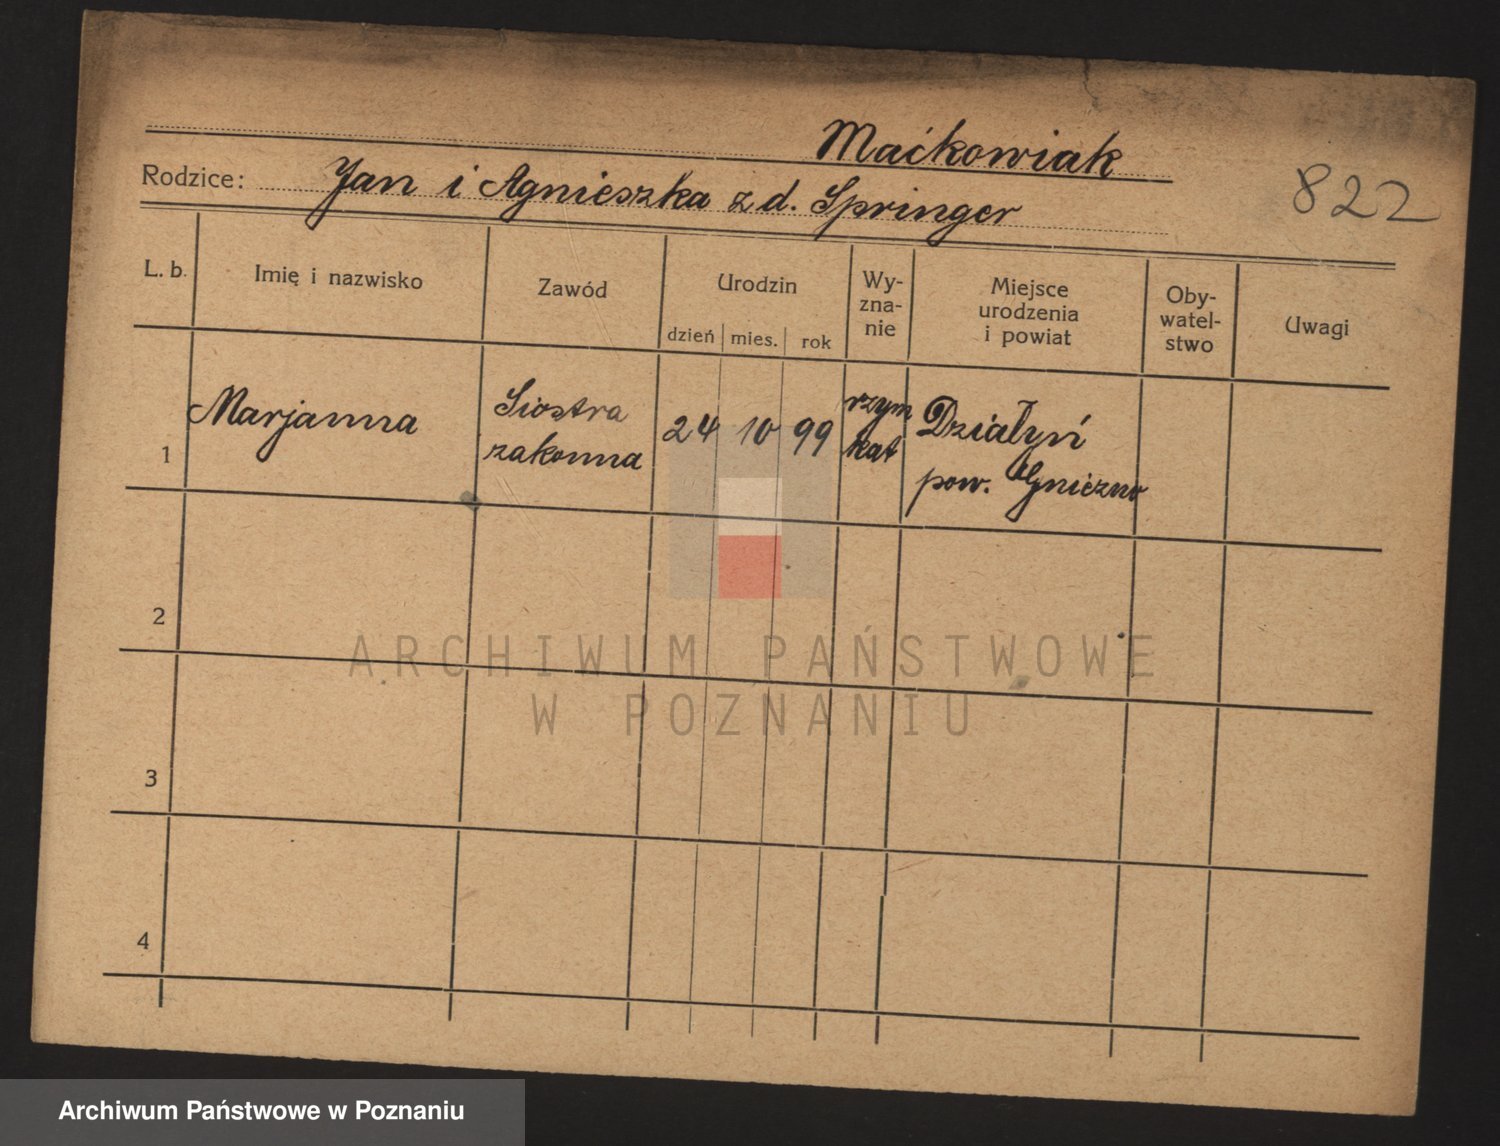 Maćkowiak
Rodzice: Jan i Agnieszka z d. Springer
822
L. b. Imię i nazwisko Zawód Urodzin Wy- Miejsce Oby- Uwagi
zna- urodzenia watel-
dzień mies. rok nie i powiat stwo
1 Marjanna Siostra 24 10 99 rzym Działyń
zakonna kat pow. Gniezno
2
ARCHIWUM PAŃSTWOWE
W POZNANIU
3
4
Archiwum Państwowe w Poznaniu